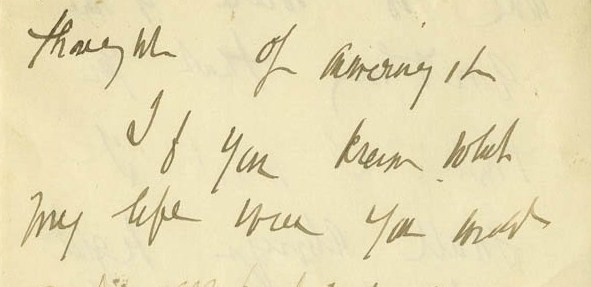 thought of answering it
If you knew what
my life was you would